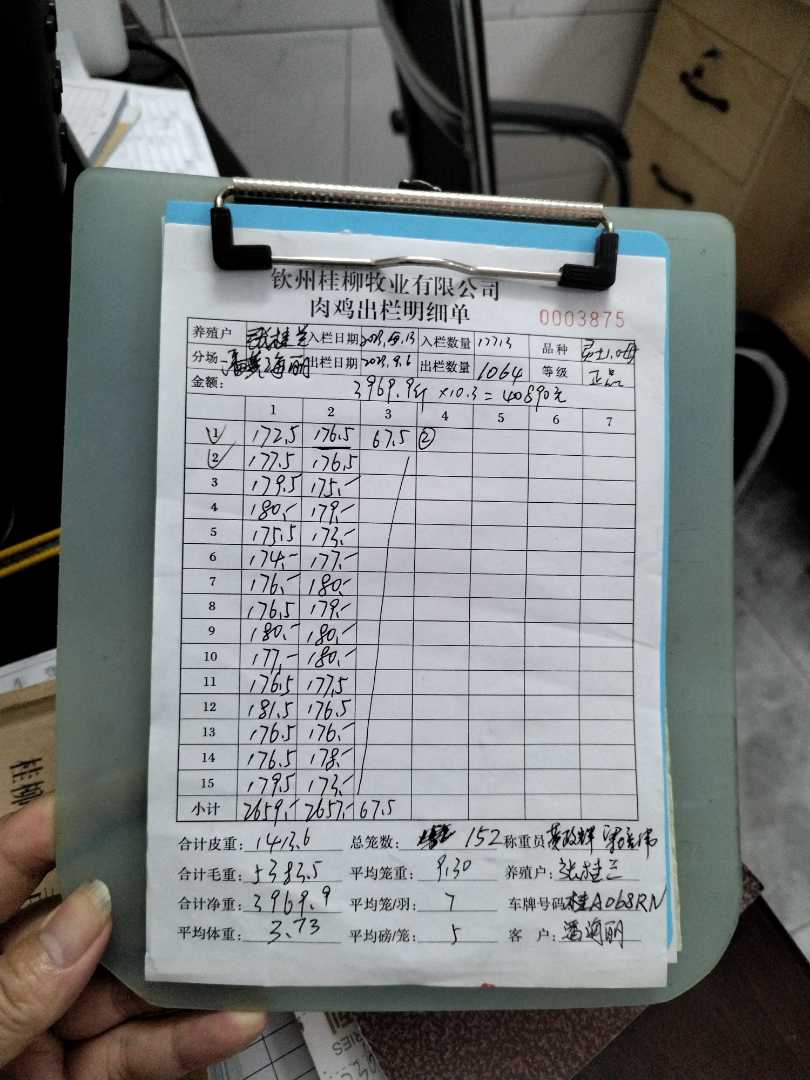 钦州桂柳牧业有限公司
肉鸡出栏明细单
0003875
养殖户 张桂兰 入栏日期 入栏数量 品种
分场 潘海丽 出栏日期 2023.9.6 出栏数量 1064 等级 正品
金额: 3969.9斤 ×10.3=40890元
1 2 3 4 5 6 7
1 172.5 176.5 67.5 ②
2 177.5 176.5
3 179.5 175.-
4 180.- 179.-
5 175.5 173.-
6 174.- 177.-
7 176.- 180.-
8 176.5 179.-
9 180.- 180.-
10 177.- 180.-
11 176.5 177.5
12 181.5 176.5
13 176.5 176.-
14 176.5 178.-
15 179.5 173.-
小计 2659.- 2657.- 67.5
合计皮重: 1413.6 总笼数: 152 称重员
合计毛重: 5383.5 平均笼重: 9.30 养殖户: 张桂兰
合计净重: 3969.9 平均笼/羽: 7 车牌号码 桂A068RN
平均体重: 3.73 平均磅/笼: 5 客 户: 潘海丽
桂柳